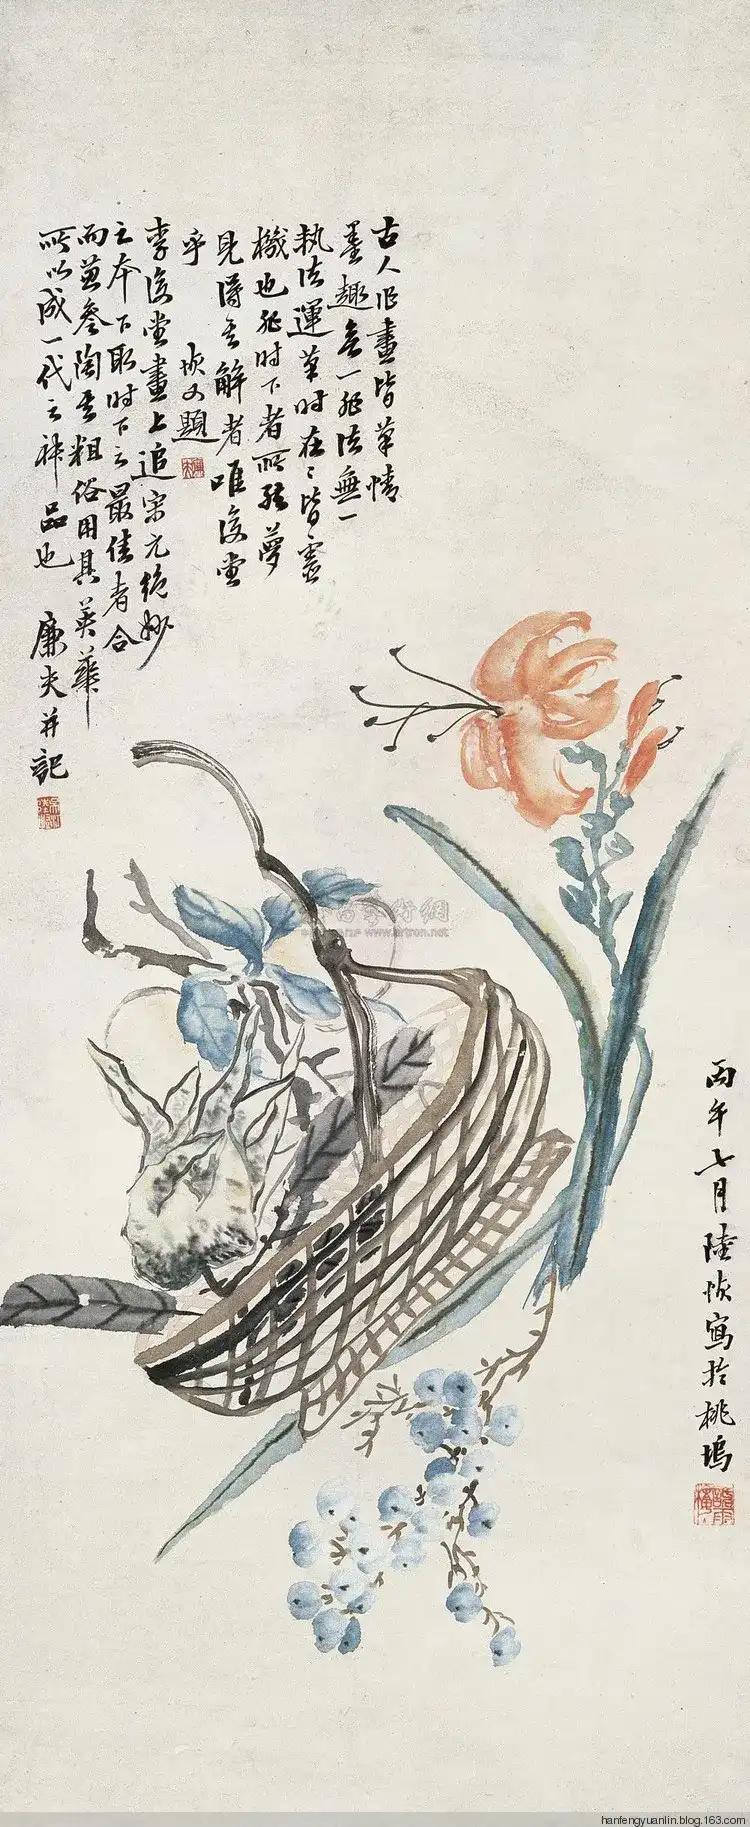 古人作畫皆筆情
墨趣無一非法無一
執法運筆時在〻皆靈
機也非時下者所能夢
見得其解者唯復堂
乎 恢又題
李復堂畫上追宋元絕妙
之本下取時下之最佳者合
而兼參陶其粗俗用其英華
所以成一代之神品也 廉夫并記
丙午七月陸恢寫於桃塢
www.artron.net
hanfengyuanlin.blog.163.com